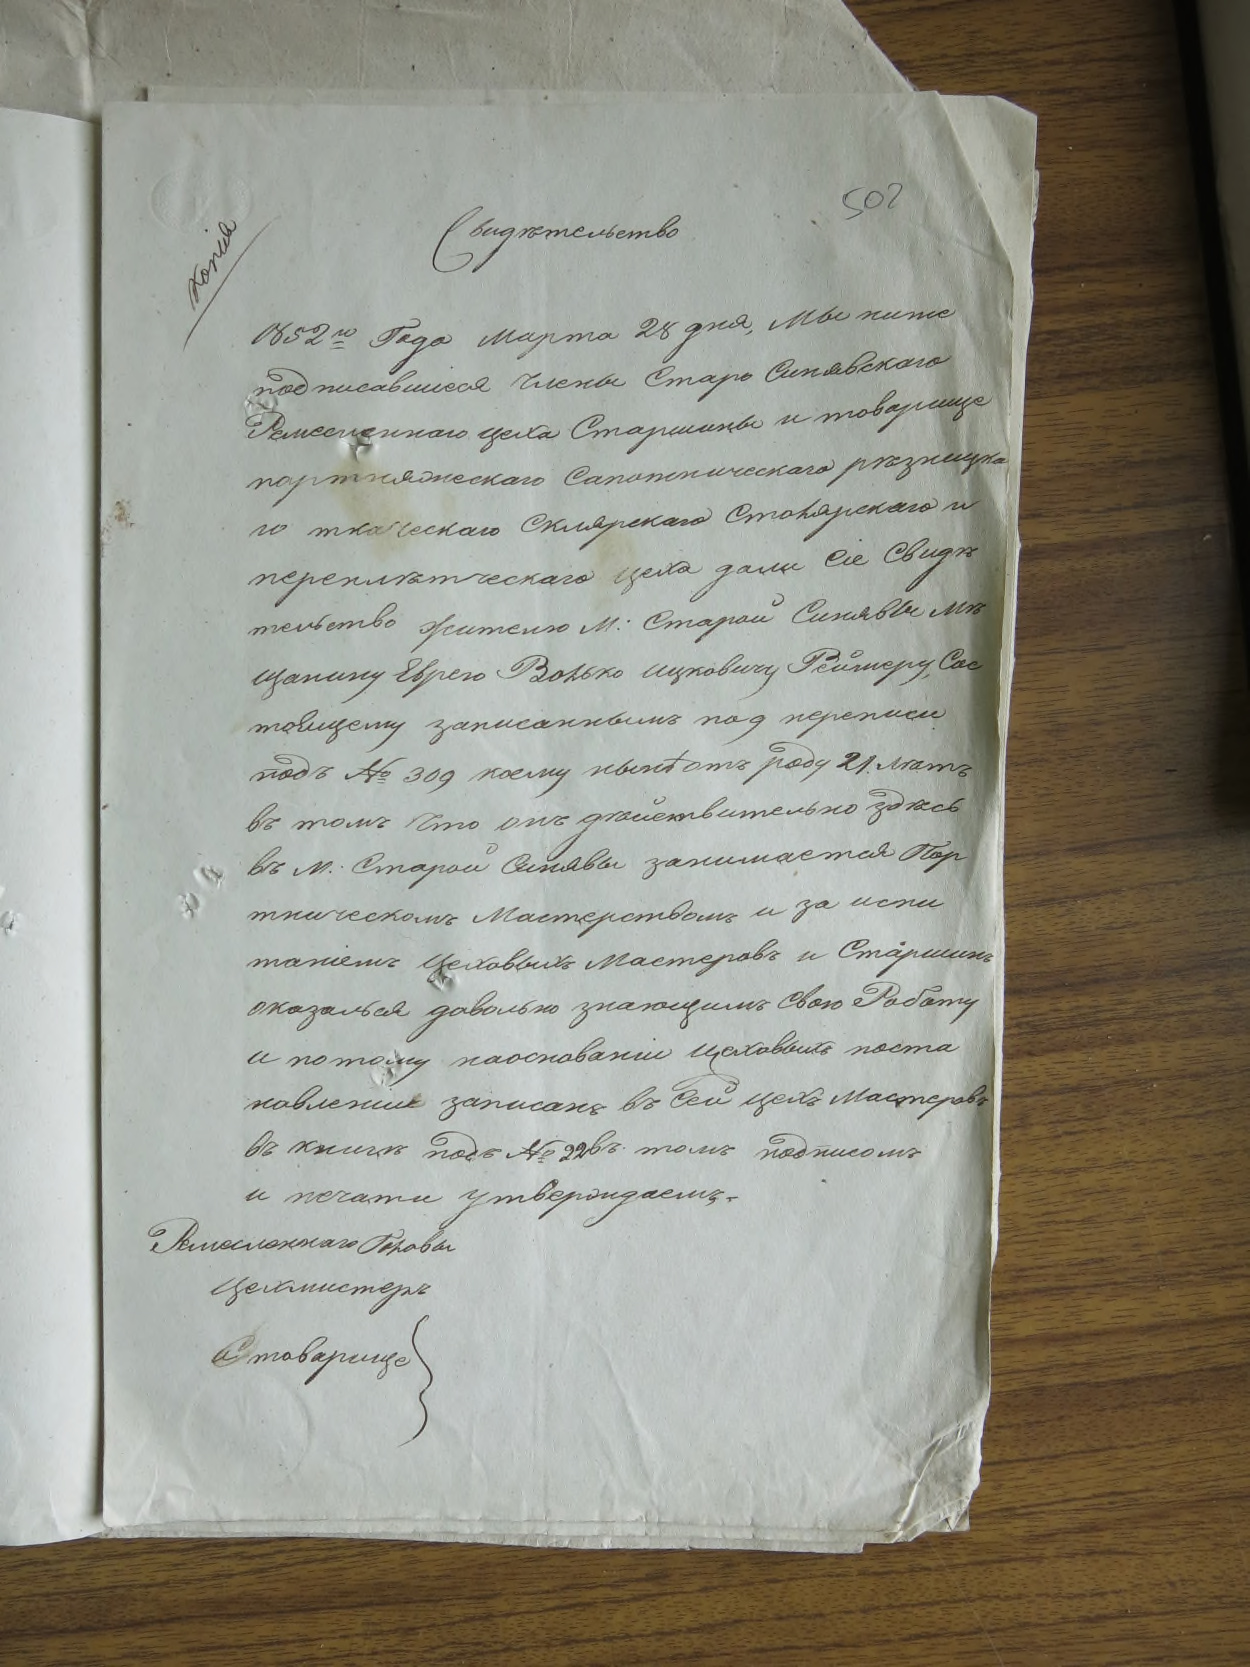 502
Копія
Свидѣтельство
1852го Года Марта 28 дня, Мы ниже
подписавшіеся Члены Старо Синявскаго
Ремесленнаго цеха Старшины и товарище
портняжескаго Сапожническаго рѣзницка
го ткаческаго Склярскаго Столярскаго и
переплѣтческаго цеха дали Сіе Свидѣ
тельство жителю М: Старой Синявы Мѣ
щанину Еврею Волько Ицковичу Реймеру, Сос
тоящему записаннымъ под переписи
подъ № 309 коему нынѣ отъ роду 21 лѣтъ
въ томъ Что онъ дѣйствительно здѣсь
въ М: Старой Синявы занимается Пор
тническомъ Мастерствомъ и за испи
таніемъ Цеховыхъ Мастеровъ и Старшинъ
оказалься довольно знающимъ свою Работу
и потому наоснованіи Цеховыхъ поста
новленіи записанъ въ Сей цехъ Мастеровъ
въ книгѣ подъ № 22 въ томъ подписомъ
и печати утверждаемъ.
Ремесленнаго Головы
Цехмистеръ
и товарище